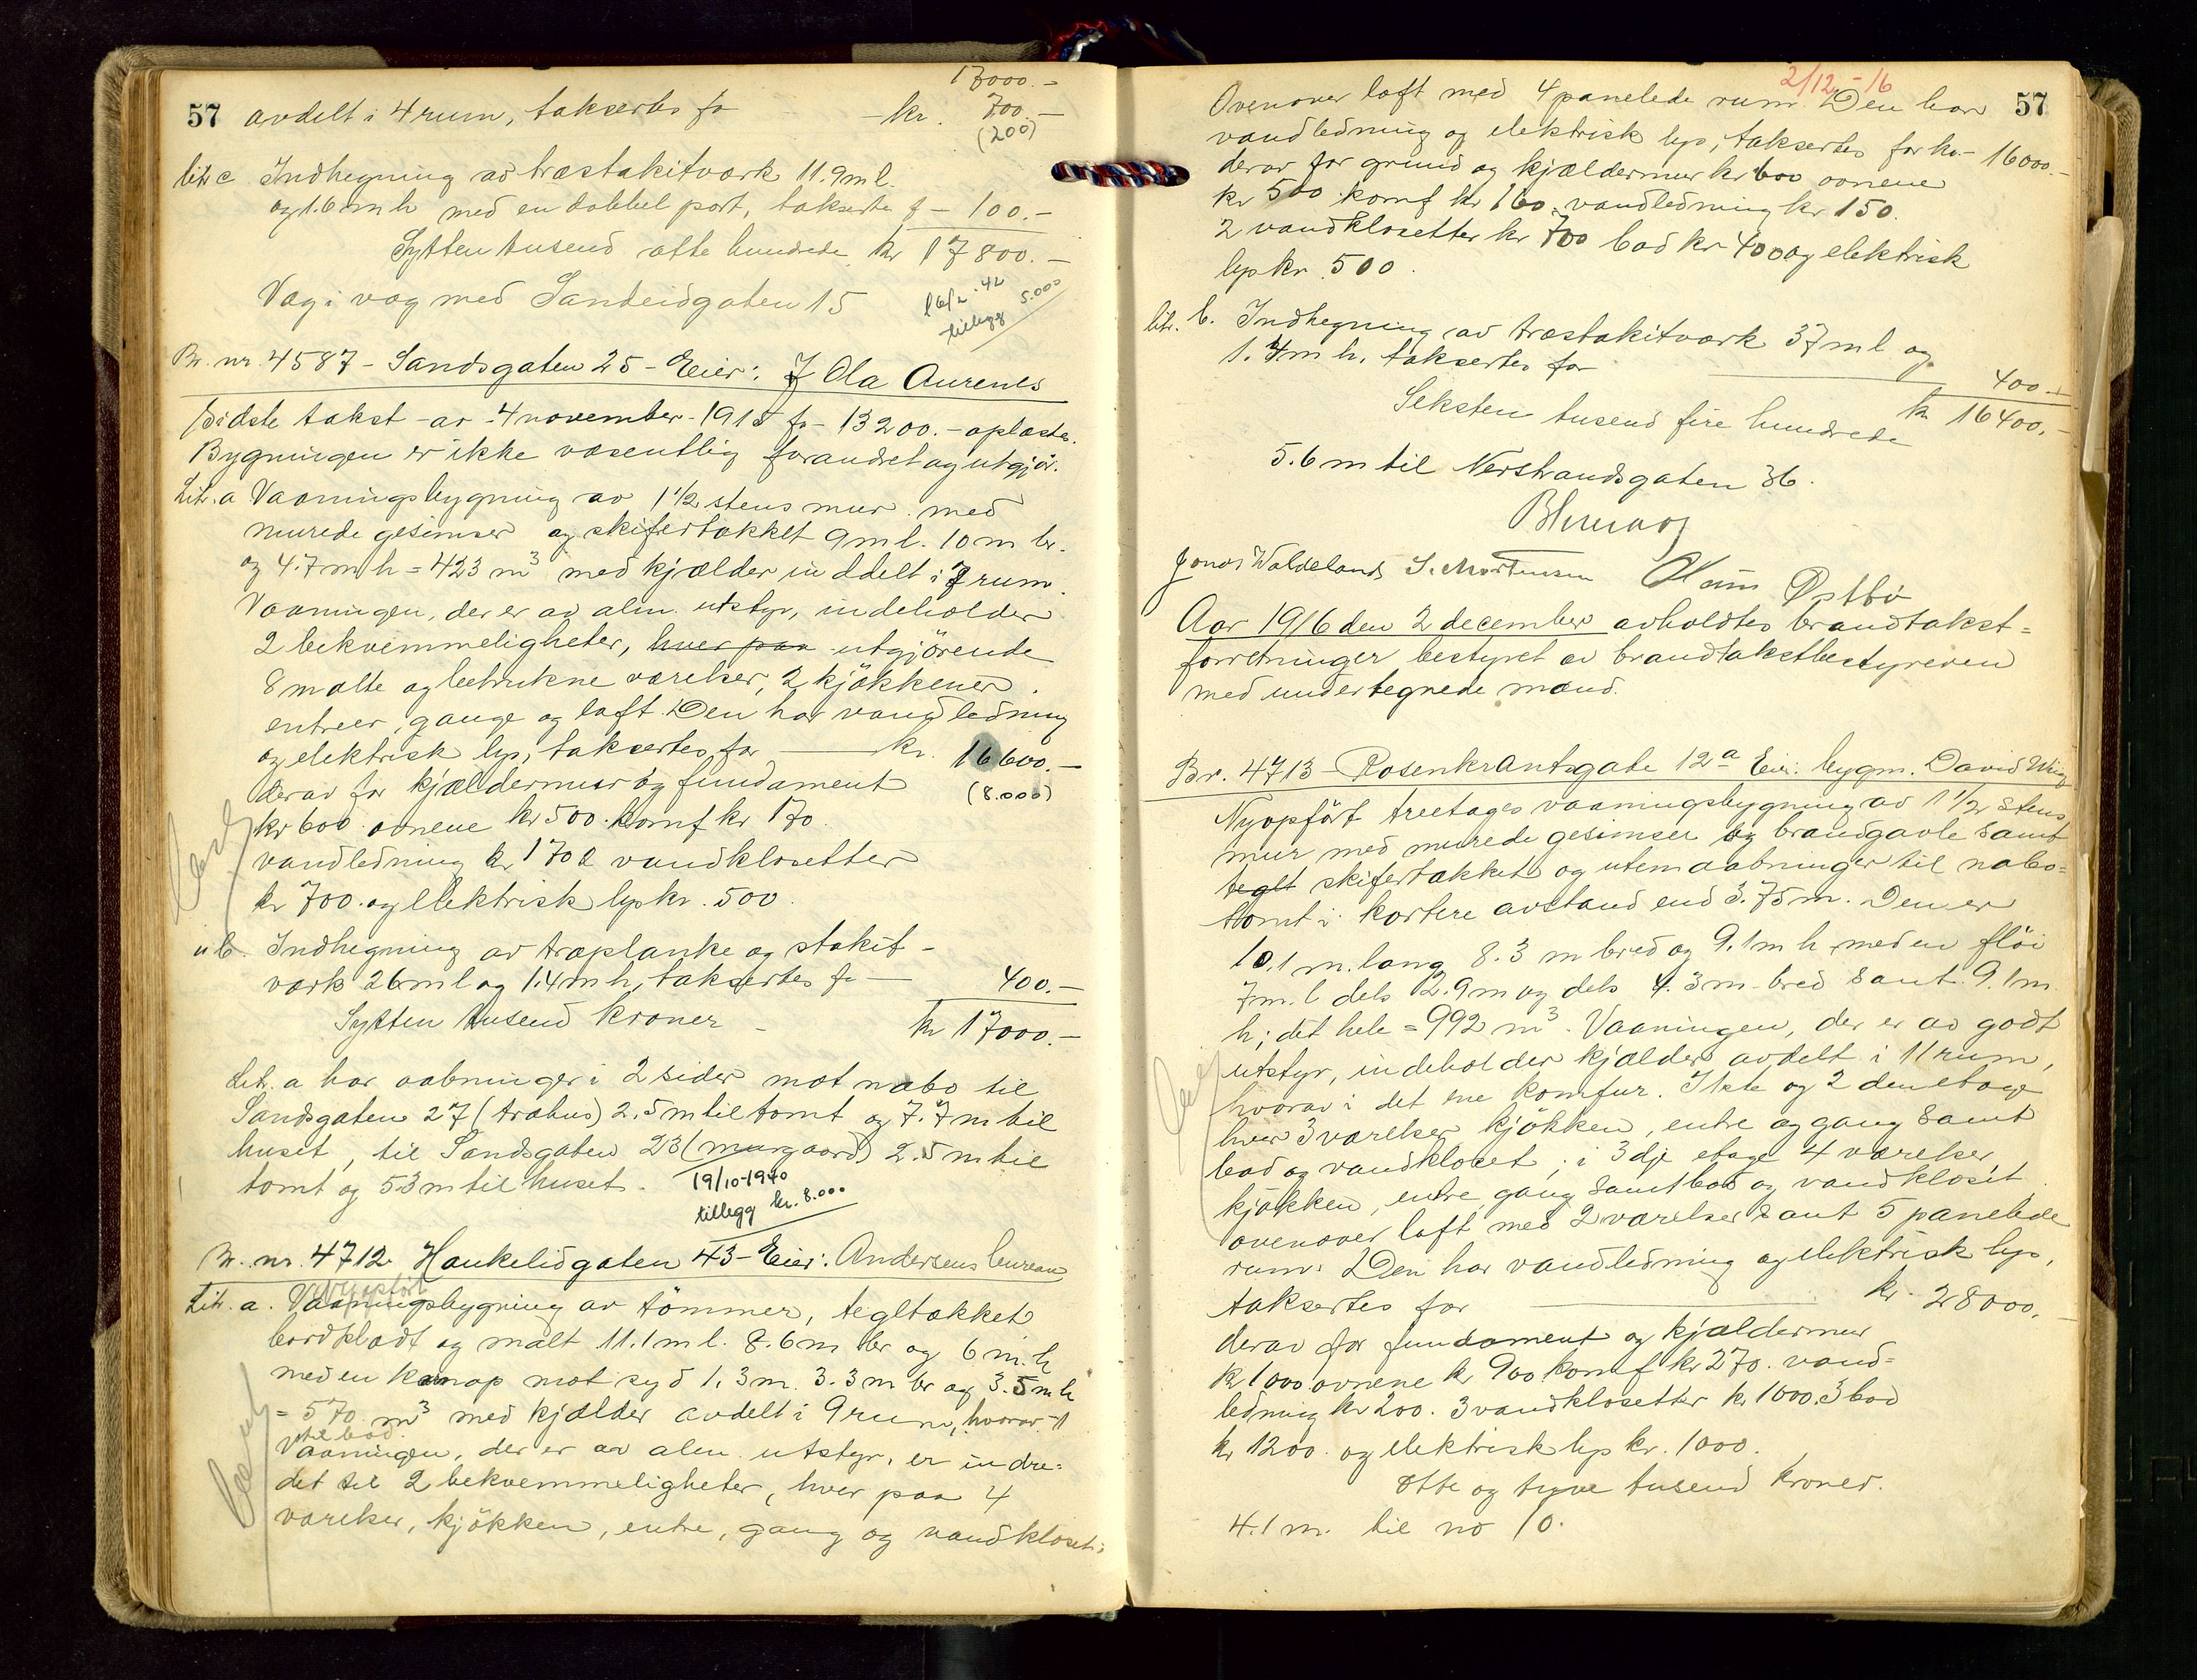 17000.-
57 avdelt i 4 rum, taksertes for - kr. 700.-
(200)
litr c Indhegning av træstakitværk 11.9 m l.
og 1.6 m h med en dobbel port, takserte f - 100.-
Sytten tusend otte hundrede kr 17800.-
Væg i væg med Sandeidgaten 15
16/2-42
tillegg 5.000
Br. nr. 4587 - Sandsgaten 25 - Eier: J Ola Aurenes
Sidste takst av 4 november 1915 for 13200.- oplæstes.
Bygningen er ikke væsentlig forandret og utgjör:
Litr. a Vaaningsbygning av 1 1/2 stens mur med
murede gesimser og skifertækket 9 m l. 10 m br.
og 4.7 m h = 423 m³ med kjælder inddelt i 7 rum.
Vaaningen, der er av alm. utstyr, indeholder
2 bekvemmeligheter, hver paa utgjörende
8 malte og betrukne værelser, 2 kjökkener
entreer, gange og loft. Den har vandledning
og elektrisk lys, taksertes for kr. 16600.-
derav for kjældermur og fundament (8.000)
kr 600 ovnene kr 500. komf kr 170.
vandledning kr 170 2 vandklosetter
kr 700. og elektrisk lys kr. 500
" b. Indhegning av træplanke og stakit-
værk 26 m l og 1.4 m h, taksertes for 400.-
Sytten tusend kroner - kr 17000.-
Litr. a har aabninger i 2 sider mot nabo til
Sandsgaten 27 (træhus) 2.5 m til tomt og 7.7 m til
huset, til Sandsgaten 23 (murgaard) 2.5 m til
tomt og 5.3 m til huset.
19/10-1940
tillegg kr. 8.000
Br. nr. 4712. Haukelidgaten 43 - Eier: Andersens bureau
Nyopfört
Litr. a. Vaaningsbygning av tömmer, tegltækket
bordklædt og malt 11.1 m l. 8.6 m br og 6 m. h
med en karnap mot syd 1.3 m. 3.3 m br og 3.5 m h
= 570 m³ med kjælder avdelt i 9 rum, hvorav 1
til bad.
Vaaningen, der er av alm. utstyr, er indre-
det til 2 bekvemmeligheter, hver paa 4
værelser, kjökken, entre, gang og vandkloset;
2/12 - 16
Ovenover loft med 4 panelede rum. Den har 57
vandledning og elektrisk lys, taksertes for kr - 16000.-
derav for grund og kjældermur kr 600 ovnene
kr 500 komf kr 160. vandledning kr 150.
2 vandklosetter kr 700 bad kr 400 og elektrisk
lys kr. 500.
litr. b. Indhegning av træstakitværk 37 m l og
1.4 m h. taksertes for 400.-
Seksten tusend fire hundrede kr 16400.-
5.6 m til Nerstrandsgaten 36.
Jonas Waldeland S. Mortensen Hans Østbö
Aar 1916 den 2 december avholdtes brandtakst-
forretninger bestyret av brandtakstbestyreren
med undertegnede mænd.
Br. 4713 - Rosenkrantzgate 12a Eier: bygm. David Wiig
Nyopfört treetages vaaningsbygning av 1 1/2 stens
mur med murede gesimser og brandgavle samt
teglt skifertækket og uten aabninger til nabo-
tomt i kortere avstand end 3.75 m. Den er
10.1 m. lang 8.3 m bred og 9.1 m h med en flöi
7 m. l dels 2.9 m og dels 4.3 m bred samt 9.1 m
h; det hele = 992 m³. Vaaningen, der er av godt
utstyr, indeholder kjælder avdelt i 11 rum,
hvorav i det ene komfur. 1ste og 2den etage
hver 3 værelser kjökken, entre og gang samt
bad og vandkloset; i 3dje etage 4 værelser,
kjökken, entre, gang samt bad og vandkloset.
ovenover loft med 2 værelser samt 5 panelede
rum. Den har vandledning og elektrisk lys,
taksertes for kr. 28000.-
derav for fundament og kjældermur
kr 1000 ovnene kr 900 komf kr 270. vand-
ledning kr 200. 3 vandklosetter kr 1000. 3 bad
kr 1200. og elektrisk lys kr. 1000.
Otte og tyve tusend kroner.
4.1 m. til no 10.